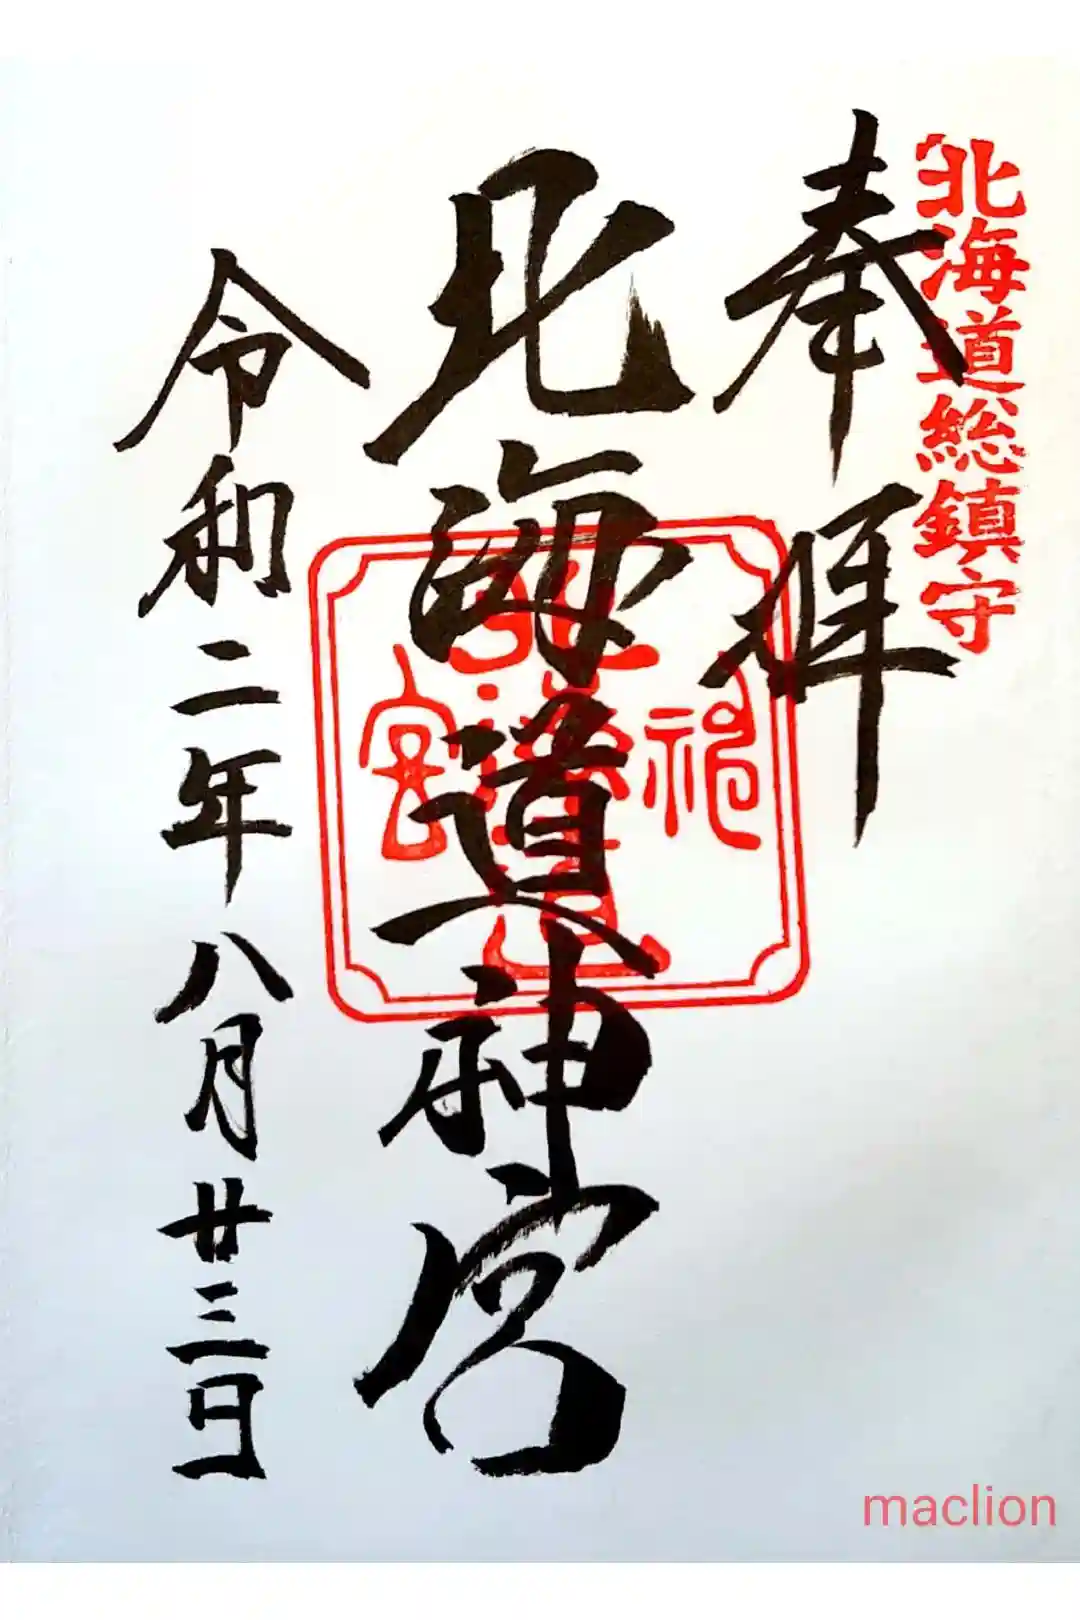 北海道総鎮守
奉拝
北海道神宮
北海道神宮
令和二年八月廿三日
maclion